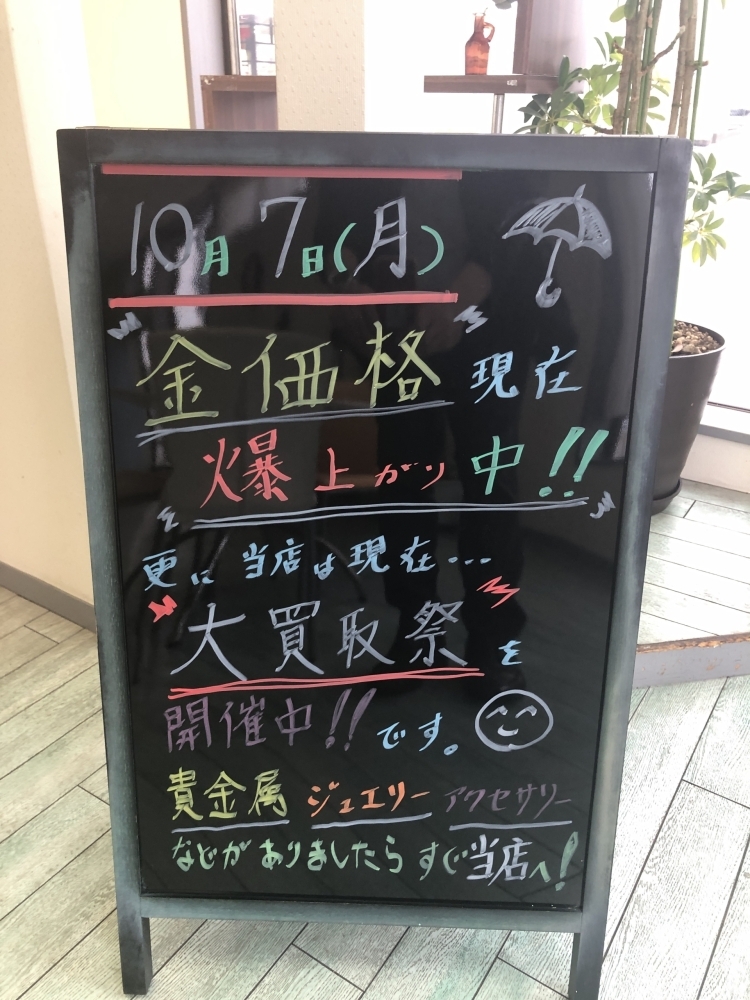 10月7日(月)
金価格 現在
爆上がり中!!
更に 当店は現在...
大買取祭を
開催中!!です。
貴金属 ジュエリー アクセサリー
などがありましたら すぐ当店へ!